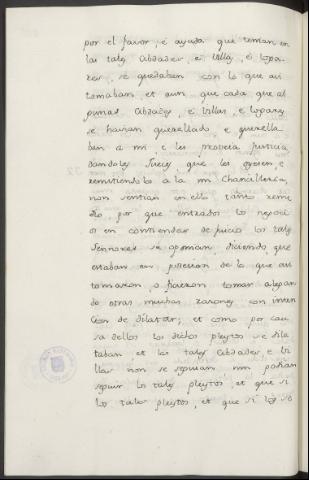 por el favor, é ayuda que tenian en
las tales Cibdades, é Villas, é Loga-
res, se quedaban con lo que asi
tomaban et aun que cada que al
gunas Cibdades, é Villas, é Logares
se havian querellado, é querella-
ban a mi é les proveia Justicia
dandoles Jueces que les oyesen é
remitiendolos a la mi Chancilleria,
non sentian en ello tanto reme
dio, por que entrados los negoci
os en contiendas de juicio los tales
Sennores se oponian, diciendo que
estaban en posesion de lo que asi
tomaron, o ficieron tomar alegan
do otras muchas razones con inten
cion de dilatar; et como por cau
sa dellos los dichos pleytos se dila
taban et las tales Cibdades e Vi
llas non se seguian nin podian
seguir los tales pleytos, et que si
los tales pleytos, et que si los se